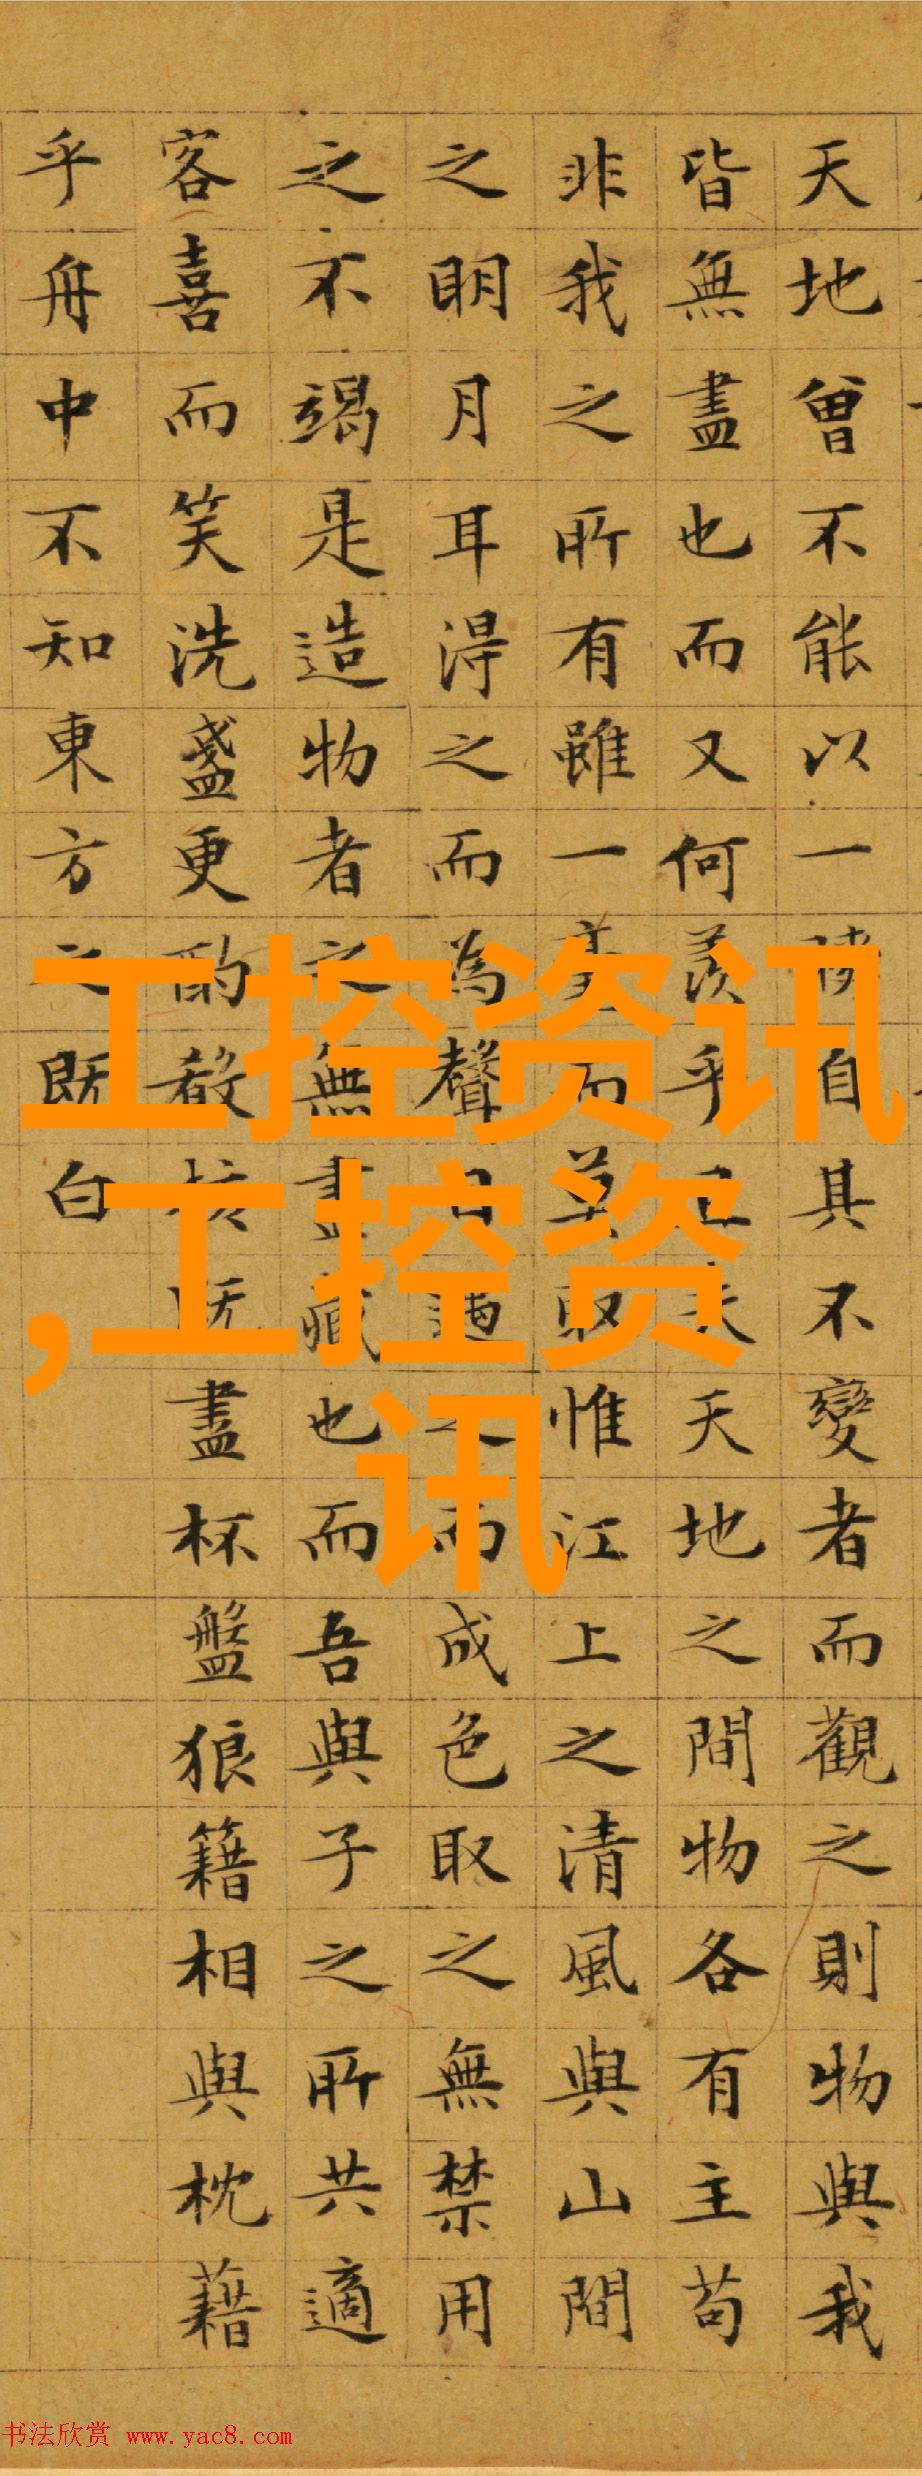 天地曾不能以一瞬自其不變者而觀之則物與我
皆無盡也而又何羨乎且夫天地之間物各有主苟
非我之所有雖一毫而莫取惟江上之清風與山間
之明月耳得之而為聲目遇之而成色取之無禁用
之不竭是造物者之無盡藏也而吾與子之所共適
客喜而笑洗盞更酌殽核既盡杯盤狼籍相與枕藉
乎舟中不知東方之既白
工控资讯
,工控资
讯
书法欣赏 www.yac8.com